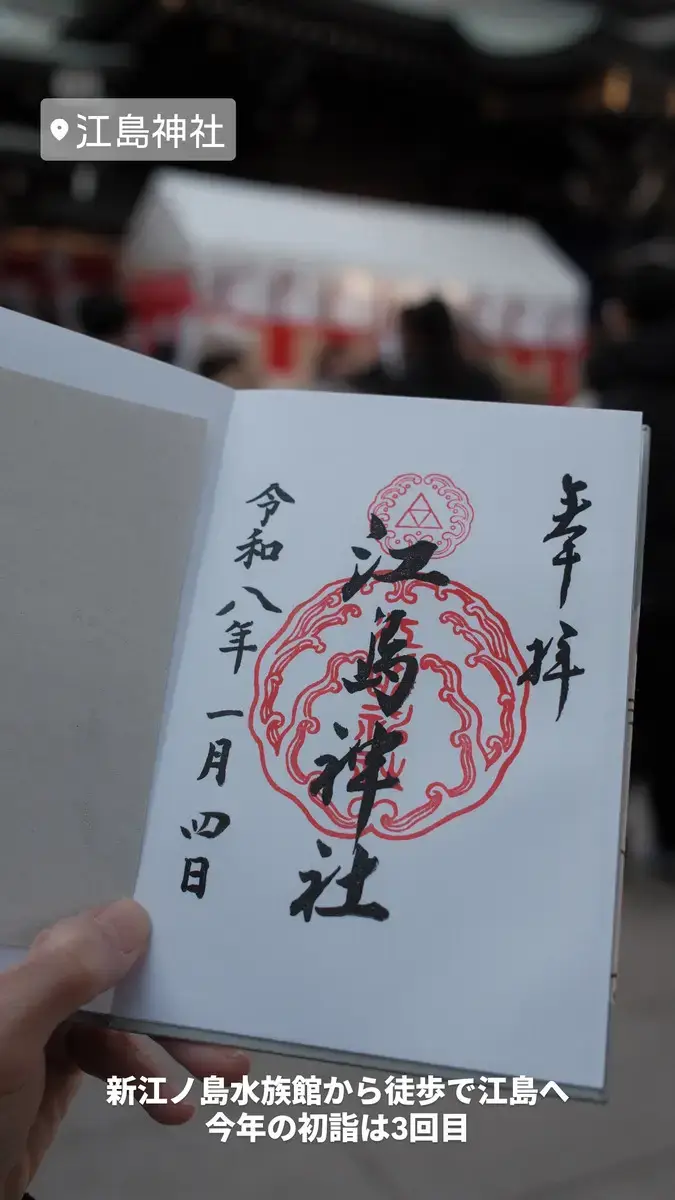 江島神社
奉拝
江島神社
令和八年一月四日
新江ノ島水族館から徒歩で江島へ
今年の初詣は3回目